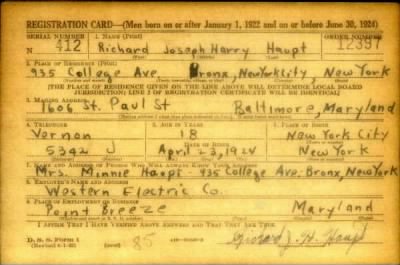 REGISTRATION CARD—(Men born on or after January 1, 1922 and on or before June 30, 1924)
SERIAL NUMBER 1. NAME (Print) ORDER NUMBER
N 412 Richard Joseph Harry Haupt 12397
2. PLACE OF RESIDENCE (Print)
935 College Ave Bronx, New York City, New York
[THE PLACE OF RESIDENCE GIVEN ON THE LINE ABOVE WILL DETERMINE LOCAL BOARD
JURISDICTION; LINE 2 OF REGISTRATION CERTIFICATE WILL BE IDENTICAL]
3. MAILING ADDRESS
1606 St. Paul St Baltimore, Maryland
4. TELEPHONE 5. AGE IN YEARS 6. PLACE OF BIRTH
Vernon 18 New York City
DATE OF BIRTH
5342 J April 23, 1924 New York
7. NAME AND ADDRESS OF PERSON WHO WILL ALWAYS KNOW YOUR ADDRESS
Mrs. Minnie Haupt 935 College Ave. Bronx, New York
8. EMPLOYER'S NAME AND ADDRESS
Western Electric Co.
9. PLACE OF EMPLOYMENT OR BUSINESS
Point Breeze Maryland
I AFFIRM THAT I HAVE VERIFIED ABOVE ANSWERS AND THAT THEY ARE TRUE.
D. S. S. Form 1
85 Richard J. H. Haupt